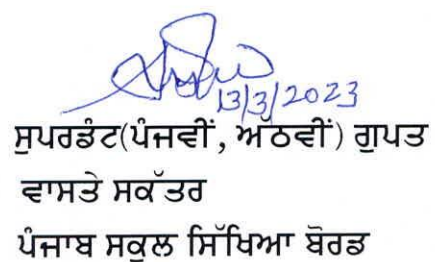 13/3/2023
ਸੁਪਰਡੰਟ(ਪੰਜਵੀਂ, ਅੱਠਵੀਂ) ਗੁਪਤ
ਵਾਸਤੇ ਸਕੱਤਰ
ਪੰਜਾਬ ਸਕੂਲ ਸਿੱਖਿਆ ਬੋਰਡ